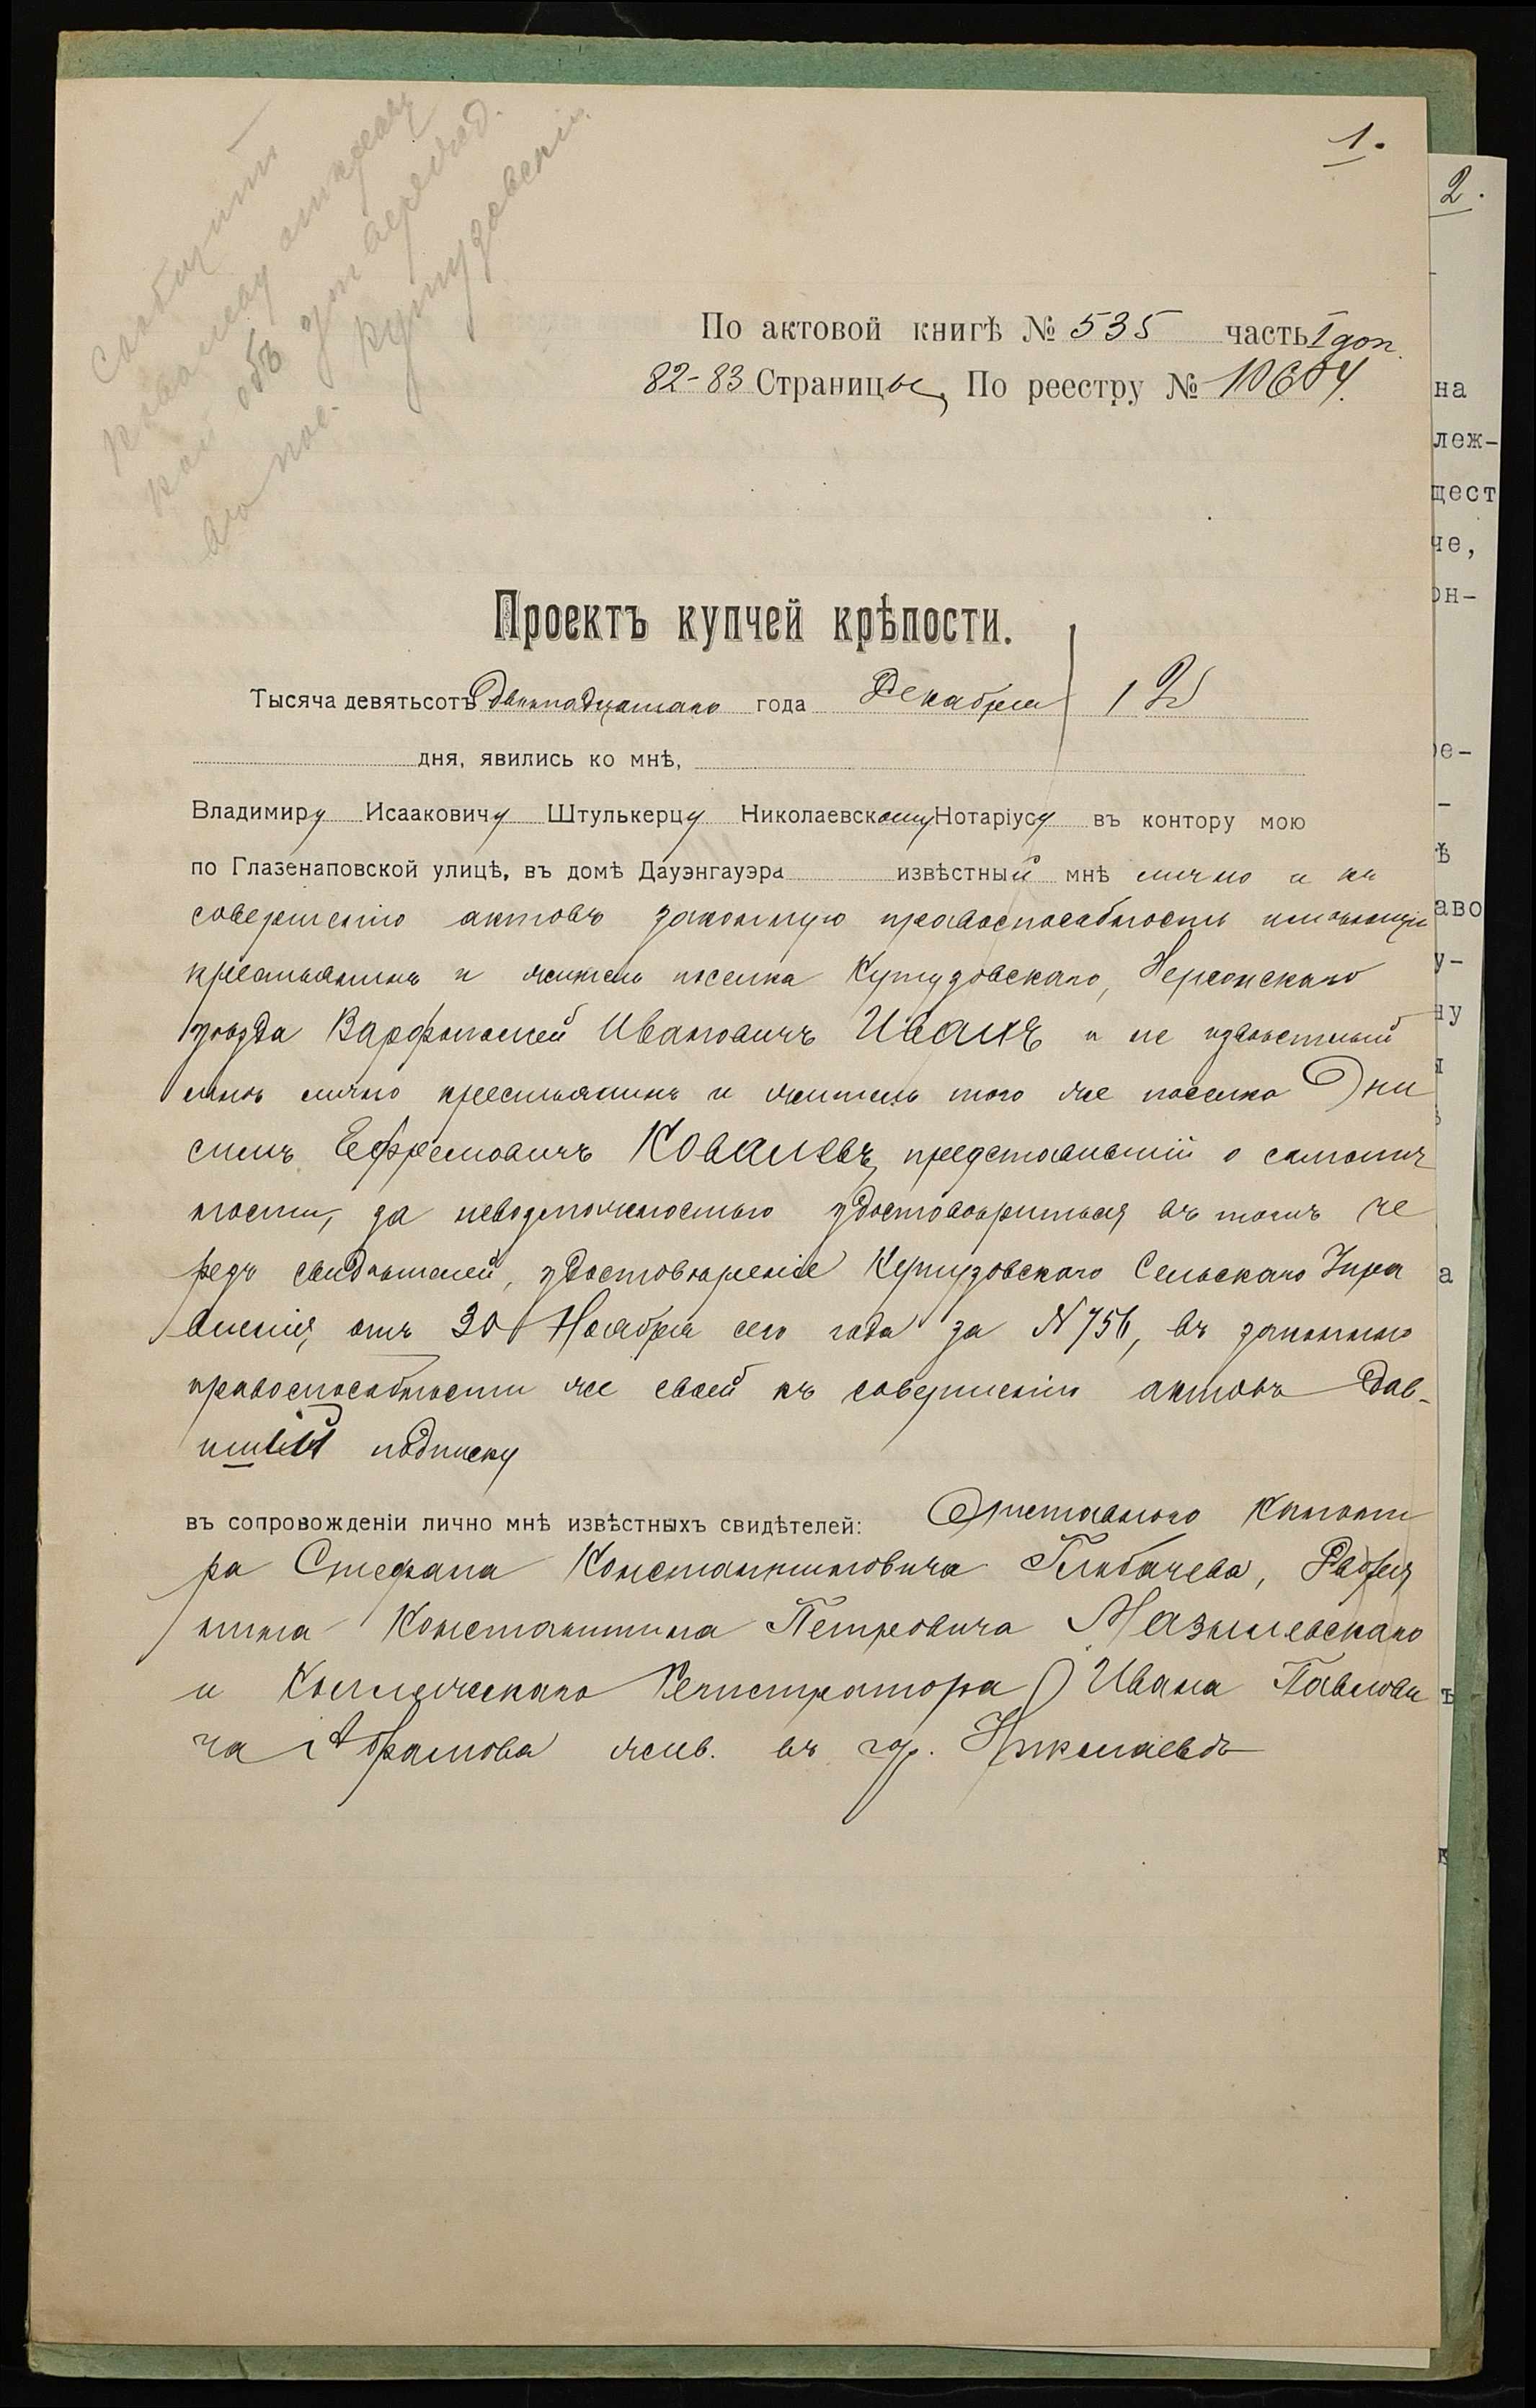 1.
2.
По актовой книгѣ № 535 часть I доп.
82-83 Страницы, По реестру № 10604.
Проектъ купчей крѣпости.
Тысяча девятьсотъ двѣнадцатаго года Декабря 12
дня, явились ко мнѣ,
Владимиру Исааковичу Штулькерцу Николаевскому Нотаріусу въ контору мою
по Глазенаповской улицѣ, въ домѣ Дауэнгауэра извѣстный мнѣ лично и къ
совершенію актовъ законную правоспособность имѣющій
крестьянинъ и житель поселка Кутузовскаго, Херсонскаго
уѣзда Варфоломей Ивановичъ Иванъ и не извѣстный
мнѣ лично крестьянинъ и житель того же поселка Они
симъ Ефремовичъ Ковалевъ, представившій о самолич
ности, за невозможностью удостовѣриться въ томъ че
резъ свидѣтелей, удостовѣреніе Кутузовскаго Сельскаго Упра
вленія, отъ 30 Ноября сего года за № 756, въ законной
правоспособности же своей къ совершенію актовъ дав-
шій подписку
въ сопровожденіи лично мнѣ извѣстныхъ свидѣтелей: Отставного
ра Стефана Константиновича Дворя
нина Константина Петровича
и Коллежскаго Регистратора Ивана Павлови
ча Абрамова жив. въ гор. Николаевѣ
на
леж-
щест
че,
он-
ре-
-
ѣ
аво
у-
ну
а
ѣ
к